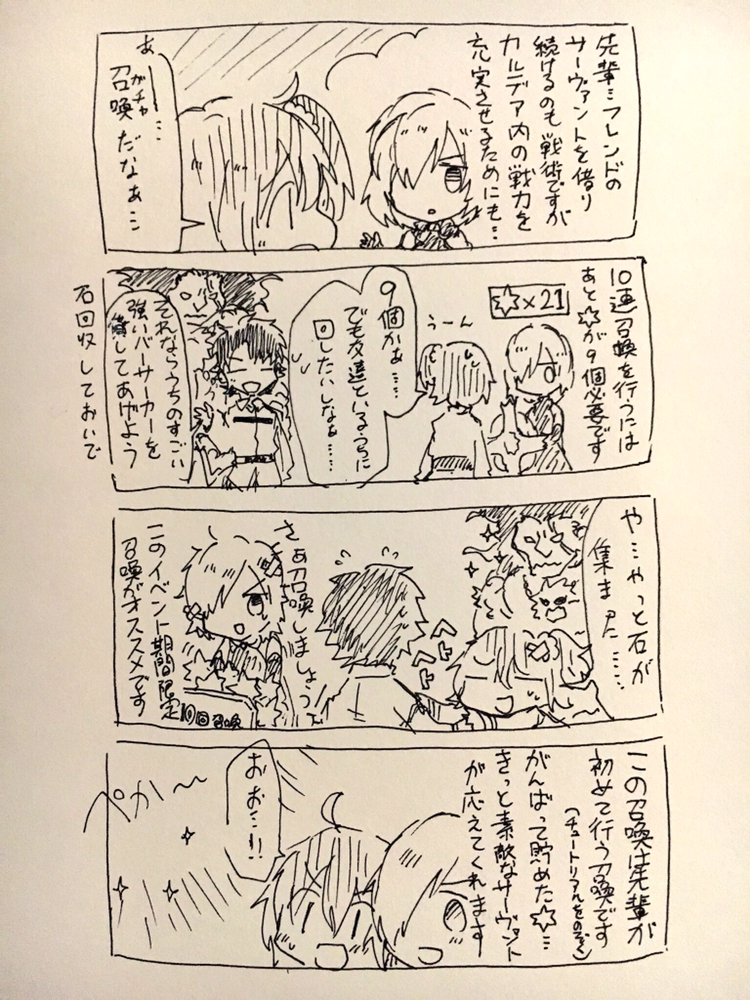 先輩…フレンドの
サーヴァントを借り
続けるのも戦術ですが
カルデア内の戦力を
充実させるためにも…
あ…
召喚だなぁ…
ガチャ
10連召喚を行うには
あと☆が9個必要です
☆×21
うーん
9個かぁ……
でも友達といるうちに
回したいしなぁ……
それならうちのすごい
強いバーサーカーを
貸してあげよう
石回収しておいで
や…やっと石が
集まった……
さぁ召喚しましょう
このイベント期間限定
召喚がオススメです
10回召喚
この召喚は先輩が
初めて行う召喚です
(チュートリアルをのぞく)
がんばって貯めた☆…
きっと素敵なサーヴァント
が応えてくれます
おお…!!
ペか〜